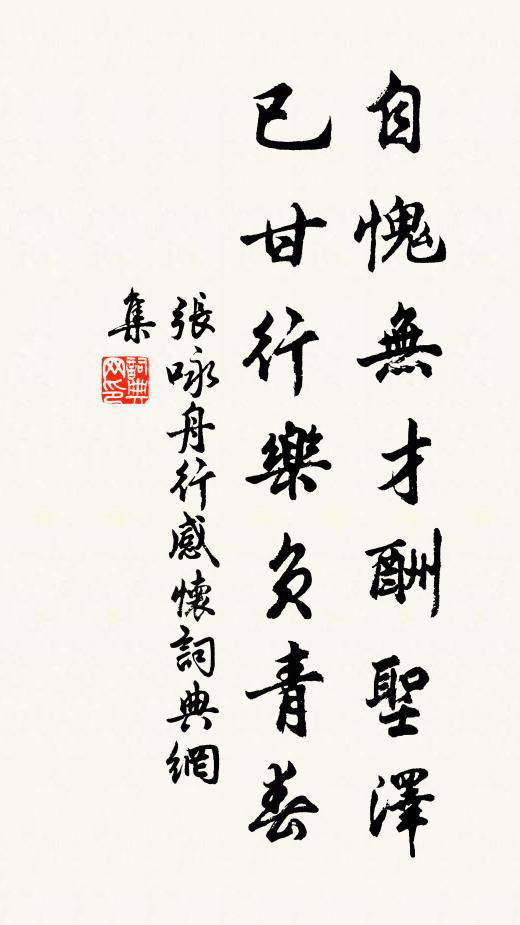 自愧無才酬聖澤
已甘行樂負青春
張咏舟行感懷詞典網
集
詞典
网印